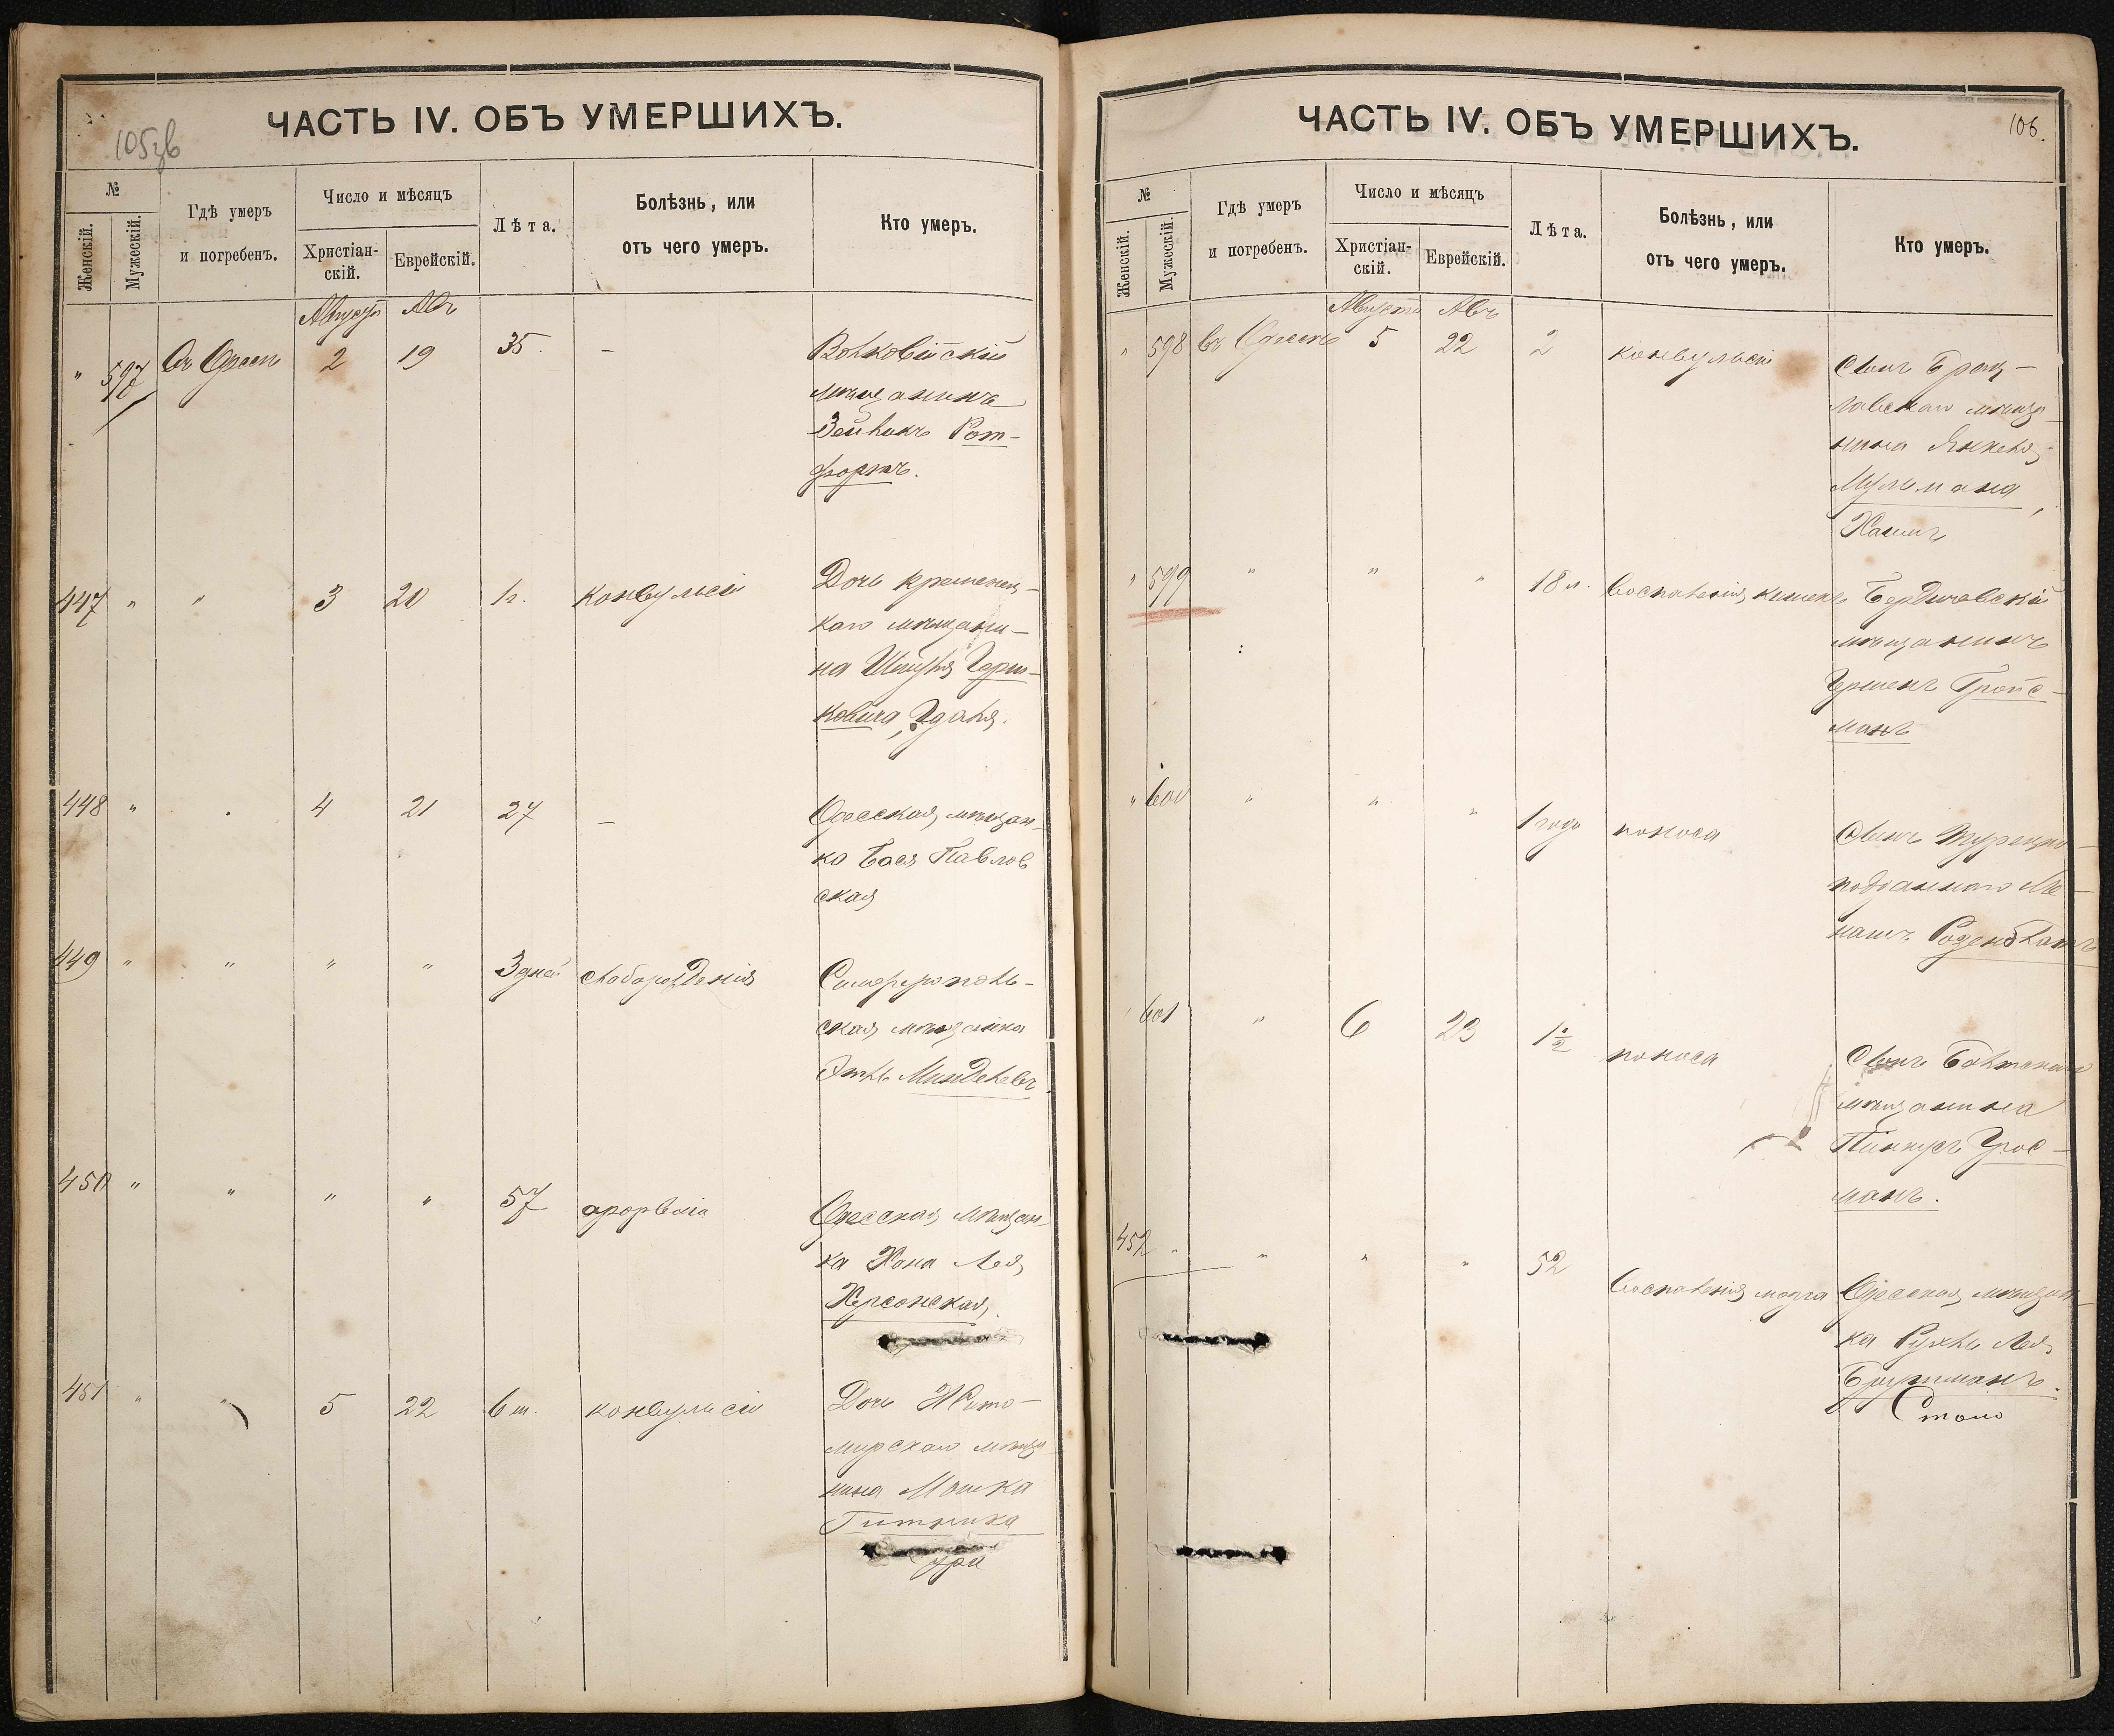 105зв
ЧАСТЬ IV. ОБЪ УМЕРШИХЪ.
№
Женскій.
Мужескій.
Гдѣ умеръ
и погребенъ.
Число и мѣсяцъ
Христіан-
скій.
Еврейскій.
Лѣта.
Болѣзнь, или
отъ чего умеръ.
Кто умеръ.
Августъ Авъ
" 597 Въ Одессѣ 2 19 35. – Волковійскій
мѣщанинъ
Зейликъ Рот-
фортъ.
447 " " 3 20 1 г. конвульсіи Дочь кременец-
каго мѣщани-
на Шмуля Герш-
ковича,
448 " . 4 21 27 – Одесская мѣщан-
ка Бася Павлов
ская
449 " " " " 3 дней слаборожденія Симферополь-
ская мѣщанка
Этль Миндлевъ
450 " " " " 57 Одесская мѣщан-
ка Хона Лея
Херсонская.
451 " " 5 22 6 м. конвульсіи Дочь Жито-
мирскаго мѣща-
нина Мошка
Гитника
106.
ЧАСТЬ IV. ОБЪ УМЕРШИХЪ.
№
Женскій.
Мужескій.
Гдѣ умеръ
и погребенъ.
Число и мѣсяцъ
Христіан-
скій.
Еврейскій.
Лѣта.
Болѣзнь, или
отъ чего умеръ.
Кто умеръ.
Августъ Авъ
" 598 въ Одессѣ 5 22 2 конвульсіи Сынъ Брац-
лавскаго мѣща-
нина Янкеля
Мульмана,
Хаимъ
" 599 " " " 18 л. Воспаленія кишекъ Бердичевскій
мѣщанинъ
Гершенъ Гройс-
манъ
" 600 " " " 1 года поноса Сынъ турецко-
подданнаго Ме-
нашъ Розенблатъ
" 601 " 6 23 1½ поноса Сынъ Балтскаго
мѣщанина
Пинкусъ Грос-
манъ.
452 " " " " 52 Воспаленія мозга Одесская мѣщан-
ка Рухль Лея
Браутманъ.